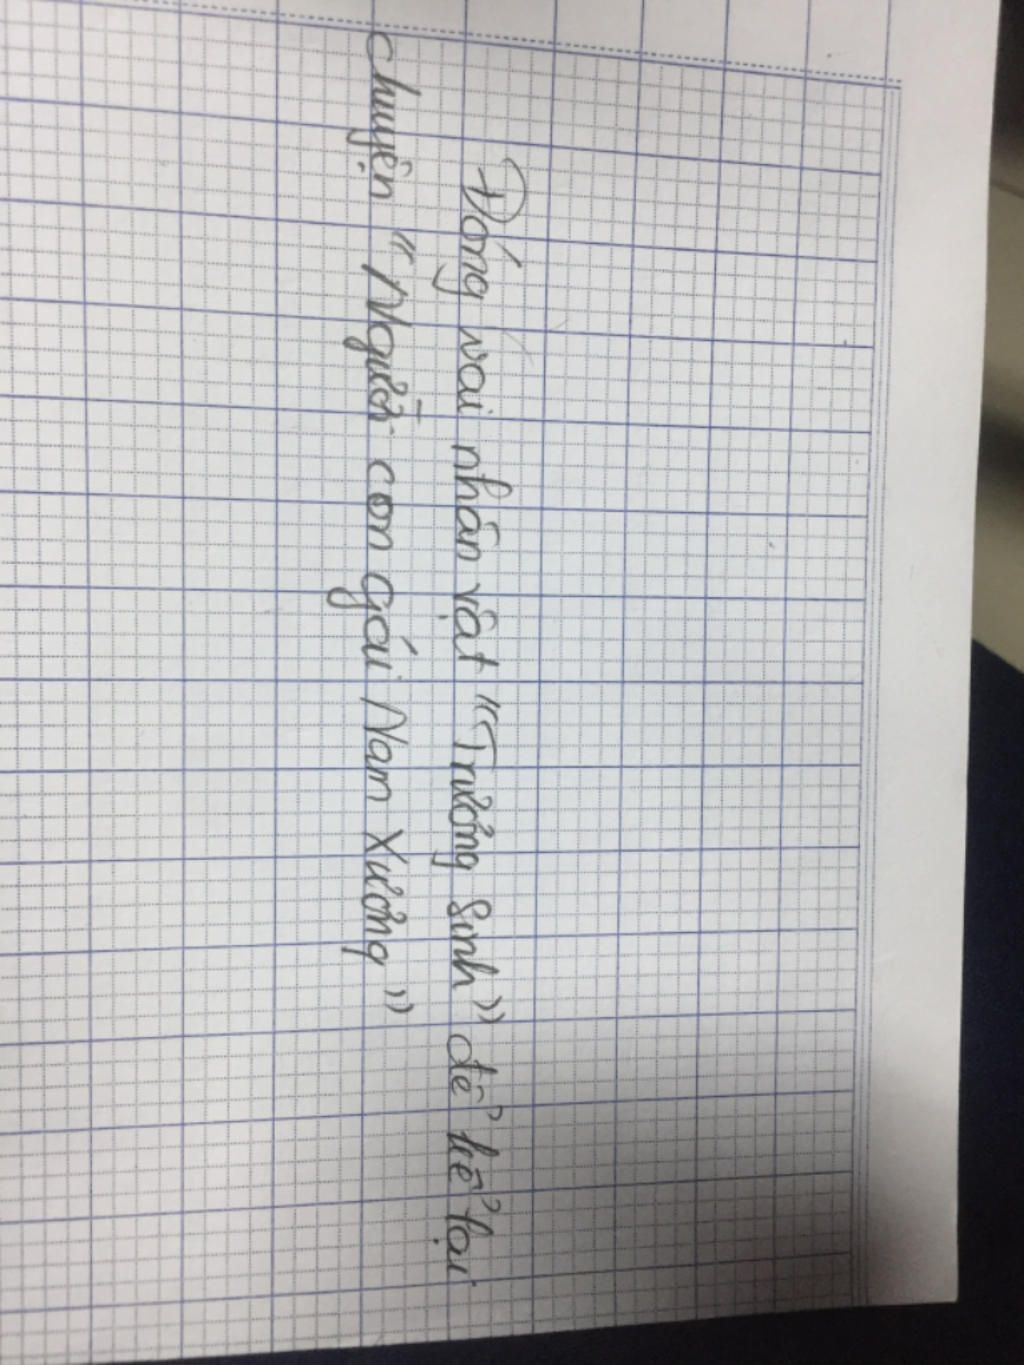 Đóng vai nhân vật "Trương Sinh" để kể lại
chuyện "Người con gái Nam Xương"